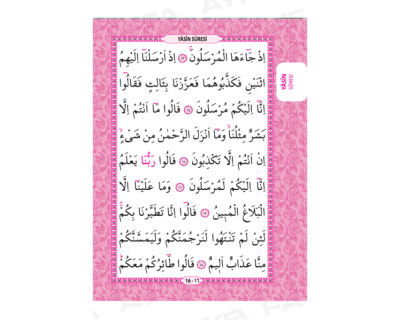 YÂSİN SÛRESİ
اِذْ جَٓاءَهَا الْمُرْسَلُونَۚ ﴿١٣﴾ اِذْ اَرْسَلْنَٓا اِلَيْهِمُ
اثْنَيْنِ فَكَذَّبُوهُمَا فَعَزَّزْنَا بِثَالِثٍ فَقَالُٓوا
اِنَّٓا اِلَيْكُمْ مُرْسَلُونَ ﴿١٤﴾ قَالُوا مَٓا اَنْتُمْ اِلَّا
بَشَرٌ مِثْلُنَاۙ وَمَٓا اَنْزَلَ الرَّحْمٰنُ مِنْ شَيْءٍۙ
اِنْ اَنْتُمْ اِلَّا تَكْذِبُونَ ﴿١٥﴾ قَالُوا رَبُّنَا يَعْلَمُ
اِنَّٓا اِلَيْكُمْ لَمُرْسَلُونَ ﴿١٦﴾ وَمَا عَلَيْنَٓا اِلَّا
الْبَلَاغُ الْمُبِينُ ﴿١٧﴾ قَالُٓوا اِنَّا تَطَيَّرْنَا بِكُمْۚ
لَئِنْ لَمْ تَنْتَهُوا لَنَرْجُمَنَّكُمْ وَلَيَمَسَّنَّكُمْ
مِنَّا عَذَابٌ اَلِيمٌ ﴿١٨﴾ قَالُوا طَٓائِرُكُمْ مَعَكُمْۜ
16 - ١٦
YÂSİN
SÛRESİ